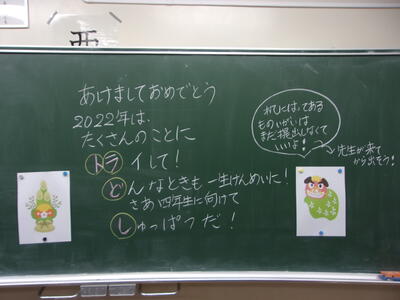 あけましておめでとう
2022年は、
たくさんのことに
トライして!
どんなときも一生けんめいに!
さあ四年生に向けて
しゅっぱつだ!
れびにはってある
ものいがいは
まだ提出しなくて
いいよ!
→先生が来て
から出そう!